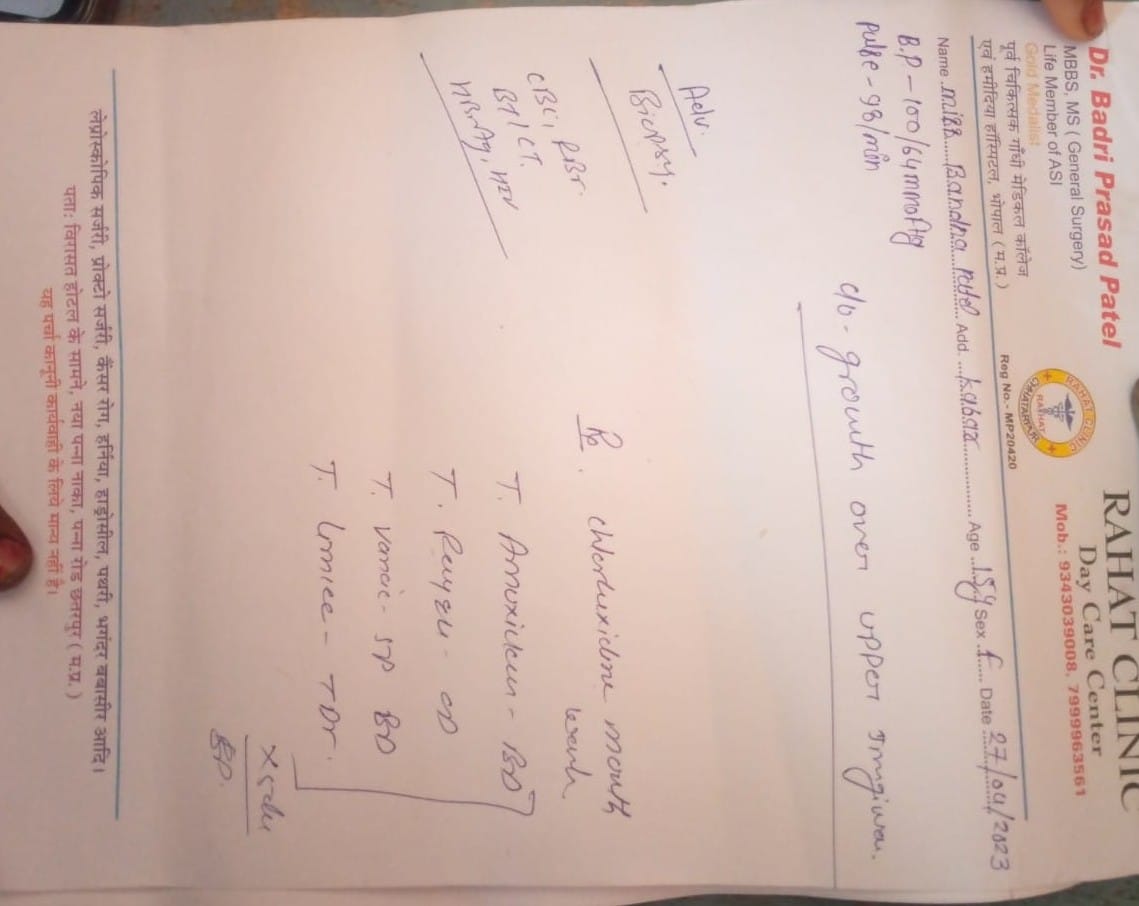 RAHAT CLINIC
Day Care Center
Mob.: 9343039008, 7999963561
RAHAT CLINIC
RAHAT
CHHATARPUR
Reg No.- MP20420
Dr. Badri Prasad Patel
MBBS, MS ( General Surgery)
Life Member of ASI
Gold Medalist
पूर्व चिकित्सक गाँधी मेडिकल कॉलेज
एवं हमीदिया हॉस्पिटल, भोपाल (म.प्र.)
Name miss Bandna Patel Add. kabar Age 15y Sex f Date 27/04/2023
B.P - 100/64 mmofHg
pulse - 98/min
c/o - growth over upper
Adv.
Biopsy.
CBC, RBS.
BT/CT.
HBsAg, HIV
Rx. chlorhexidine mouth
wash
T. Amoxiclan - BD
T. - OD
T. - SP BD
T. Limcee - TDS.
लेप्रोस्कोपिक सर्जरी, प्रोक्टो सर्जरी, कैंसर रोग, हर्निया, हाड्रोसील, पथरी, भगंदर बबासीर आदि।
पता: विरासत होटल के सामने, नया पन्ना नाका, पन्ना रोड छतरपुर ( म.प्र. )
यह पर्चा कानूनी कार्यवाही के लिये मान्य नहीं है।